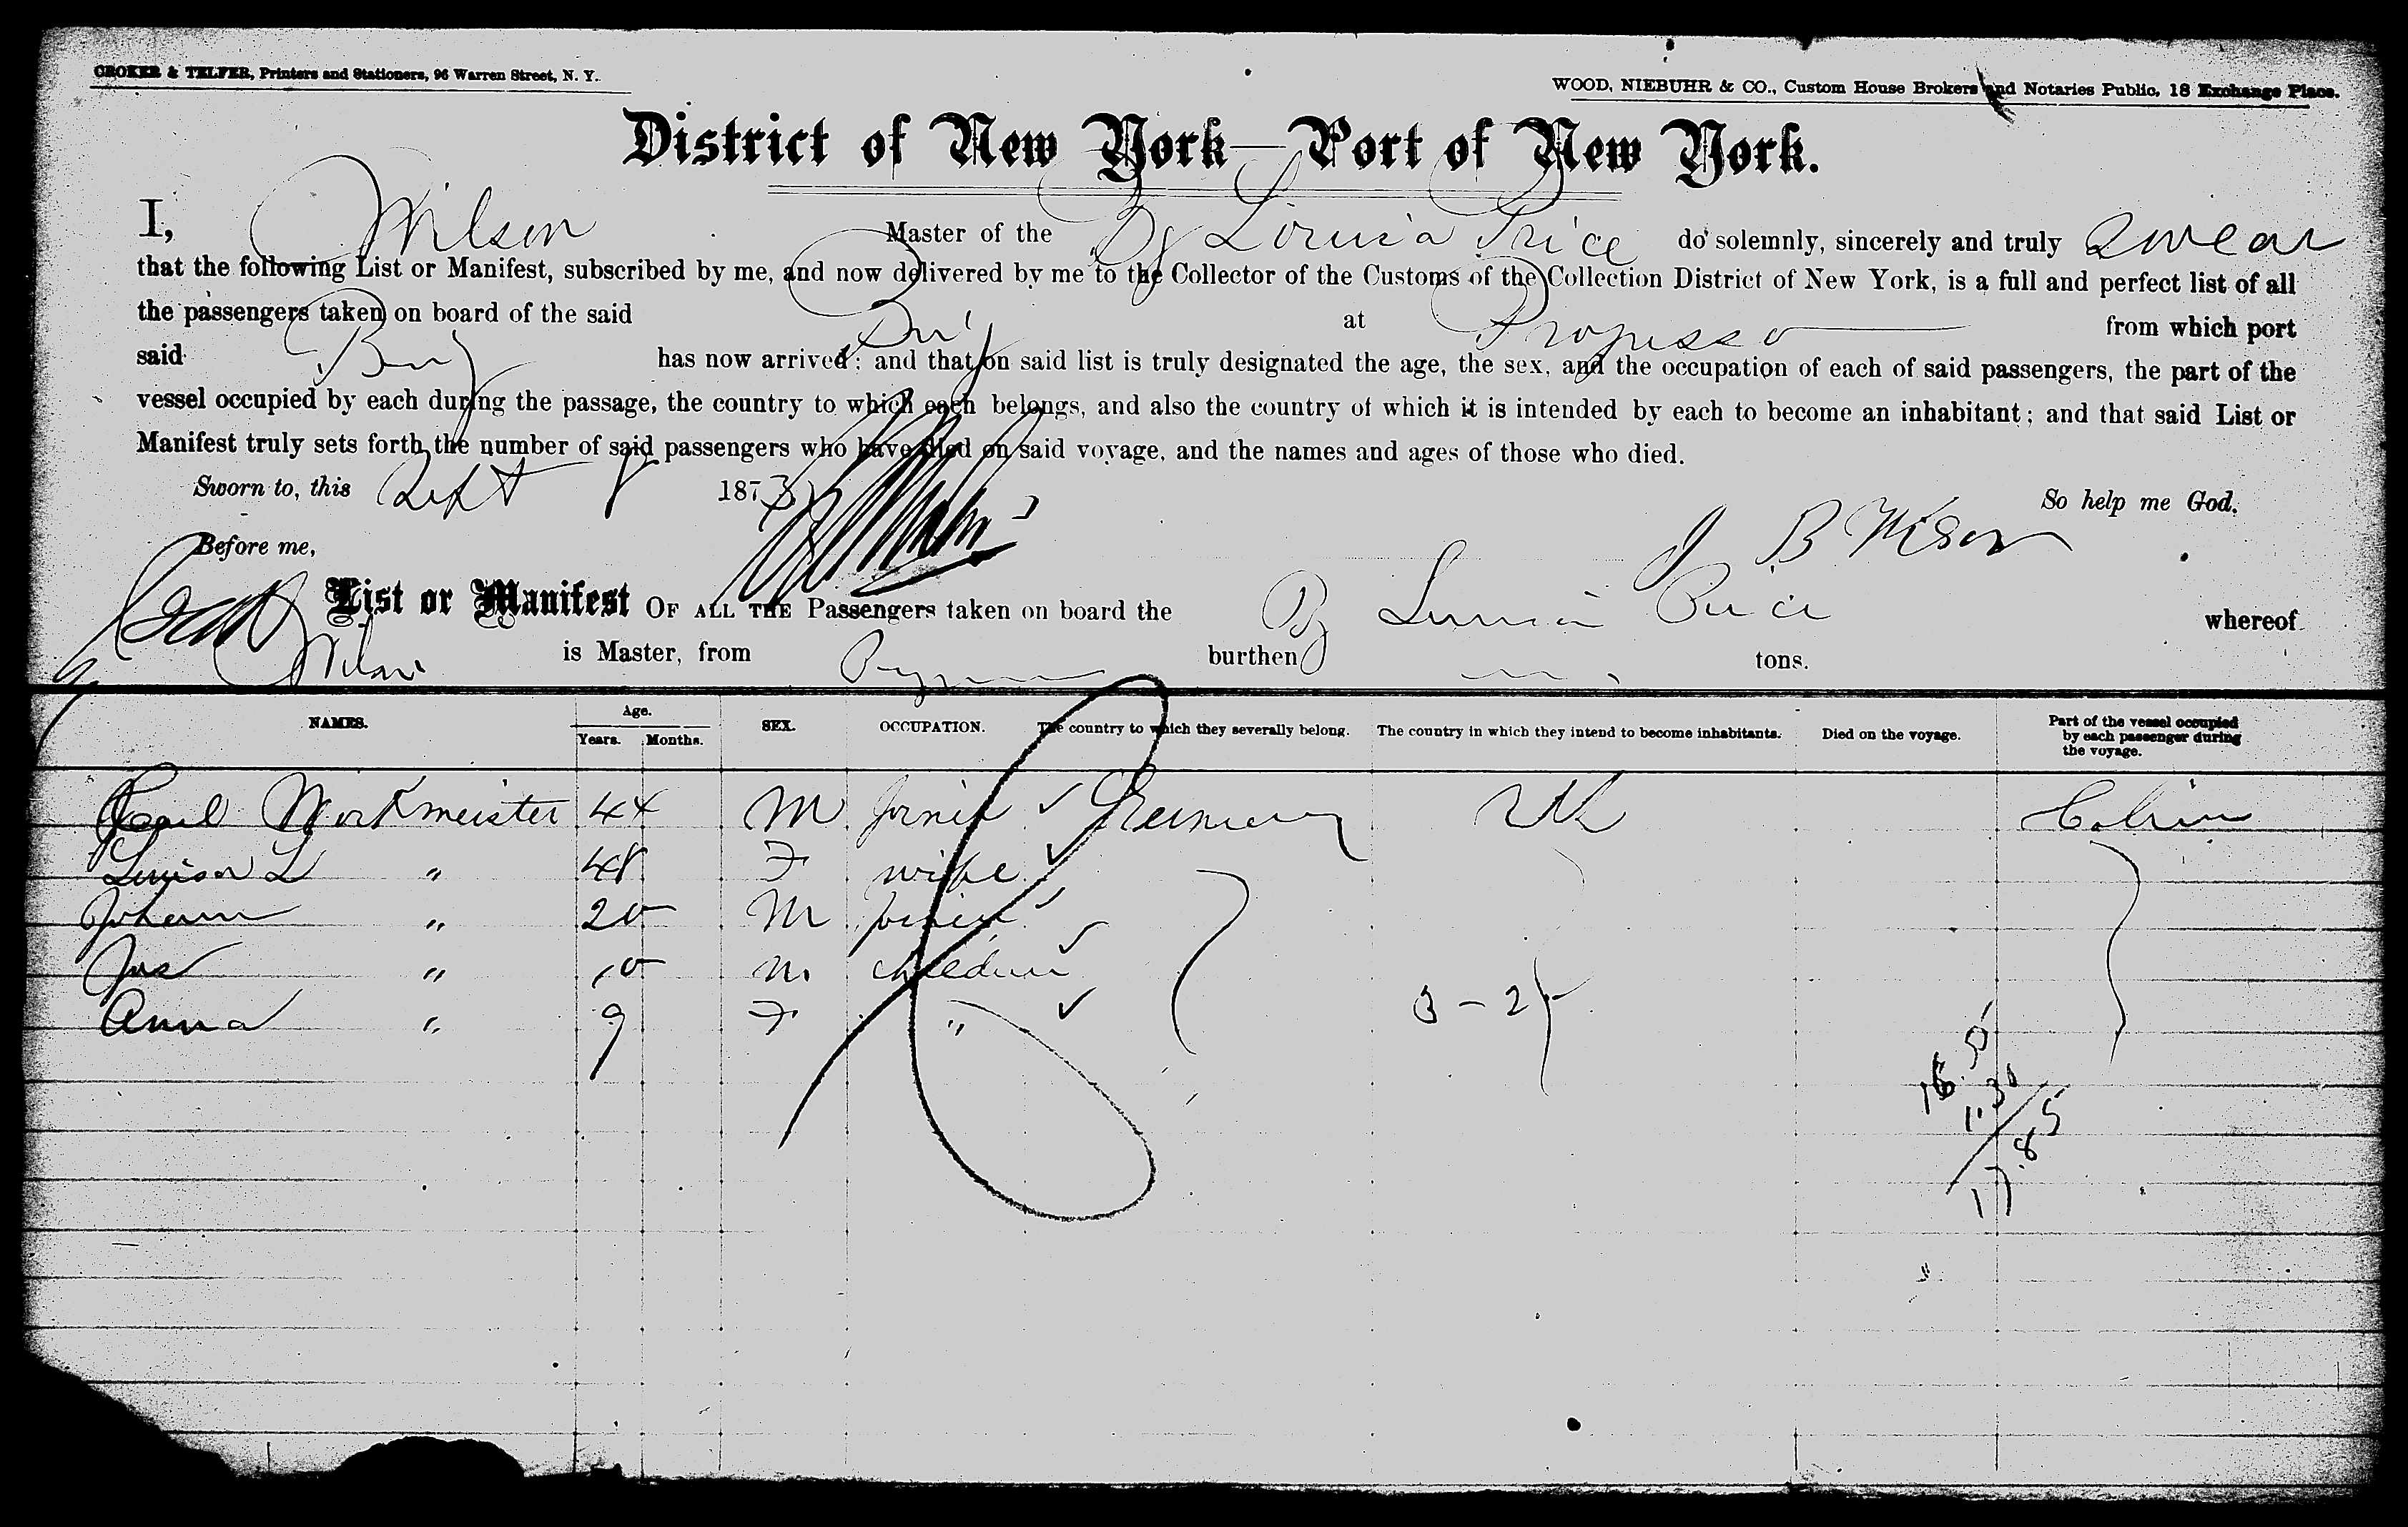 CROKER & TELFER, Printers and Stationers, 96 Warren Street, N. Y.
WOOD, NIEBUHR & CO., Custom House Brokers and Notaries Public, 18 Exchange Place.
District of New York—Port of New York.
I, Wilson Master of the Bg Louisa Price do solemnly, sincerely and truly swear
that the following List or Manifest, subscribed by me, and now delivered by me to the Collector of the Customs of the Collection District of New York, is a full and perfect list of all
the passengers taken on board of the said Brig at Progresso from which port
said Brig has now arrived; and that on said list is truly designated the age, the sex, and the occupation of each of said passengers, the part of the
vessel occupied by each during the passage, the country to which each belongs, and also the country of which it is intended by each to become an inhabitant; and that said List or
Manifest truly sets forth the number of said passengers who have died on said voyage, and the names and ages of those who died.
Sworn to, this Sept 8 1873 So help me God.
Before me, J B Wilson
List or Manifest OF ALL THE Passengers taken on board the Bg Louisa Price whereof
Wilson is Master, from burthen tons.
NAMES. Age. Years. Months. SEX. OCCUPATION. The country to which they severally belong. The country in which they intend to become inhabitants. Died on the voyage. Part of the vessel occupied by each passenger during the voyage.
Carl Workmeister 44 M Germany US Cabin
Louisa L " 48 F wife
Johann " 20 M
Jas " 10 M children
Anna " 9 F "
3 - 2
16.55
1.30
17.85